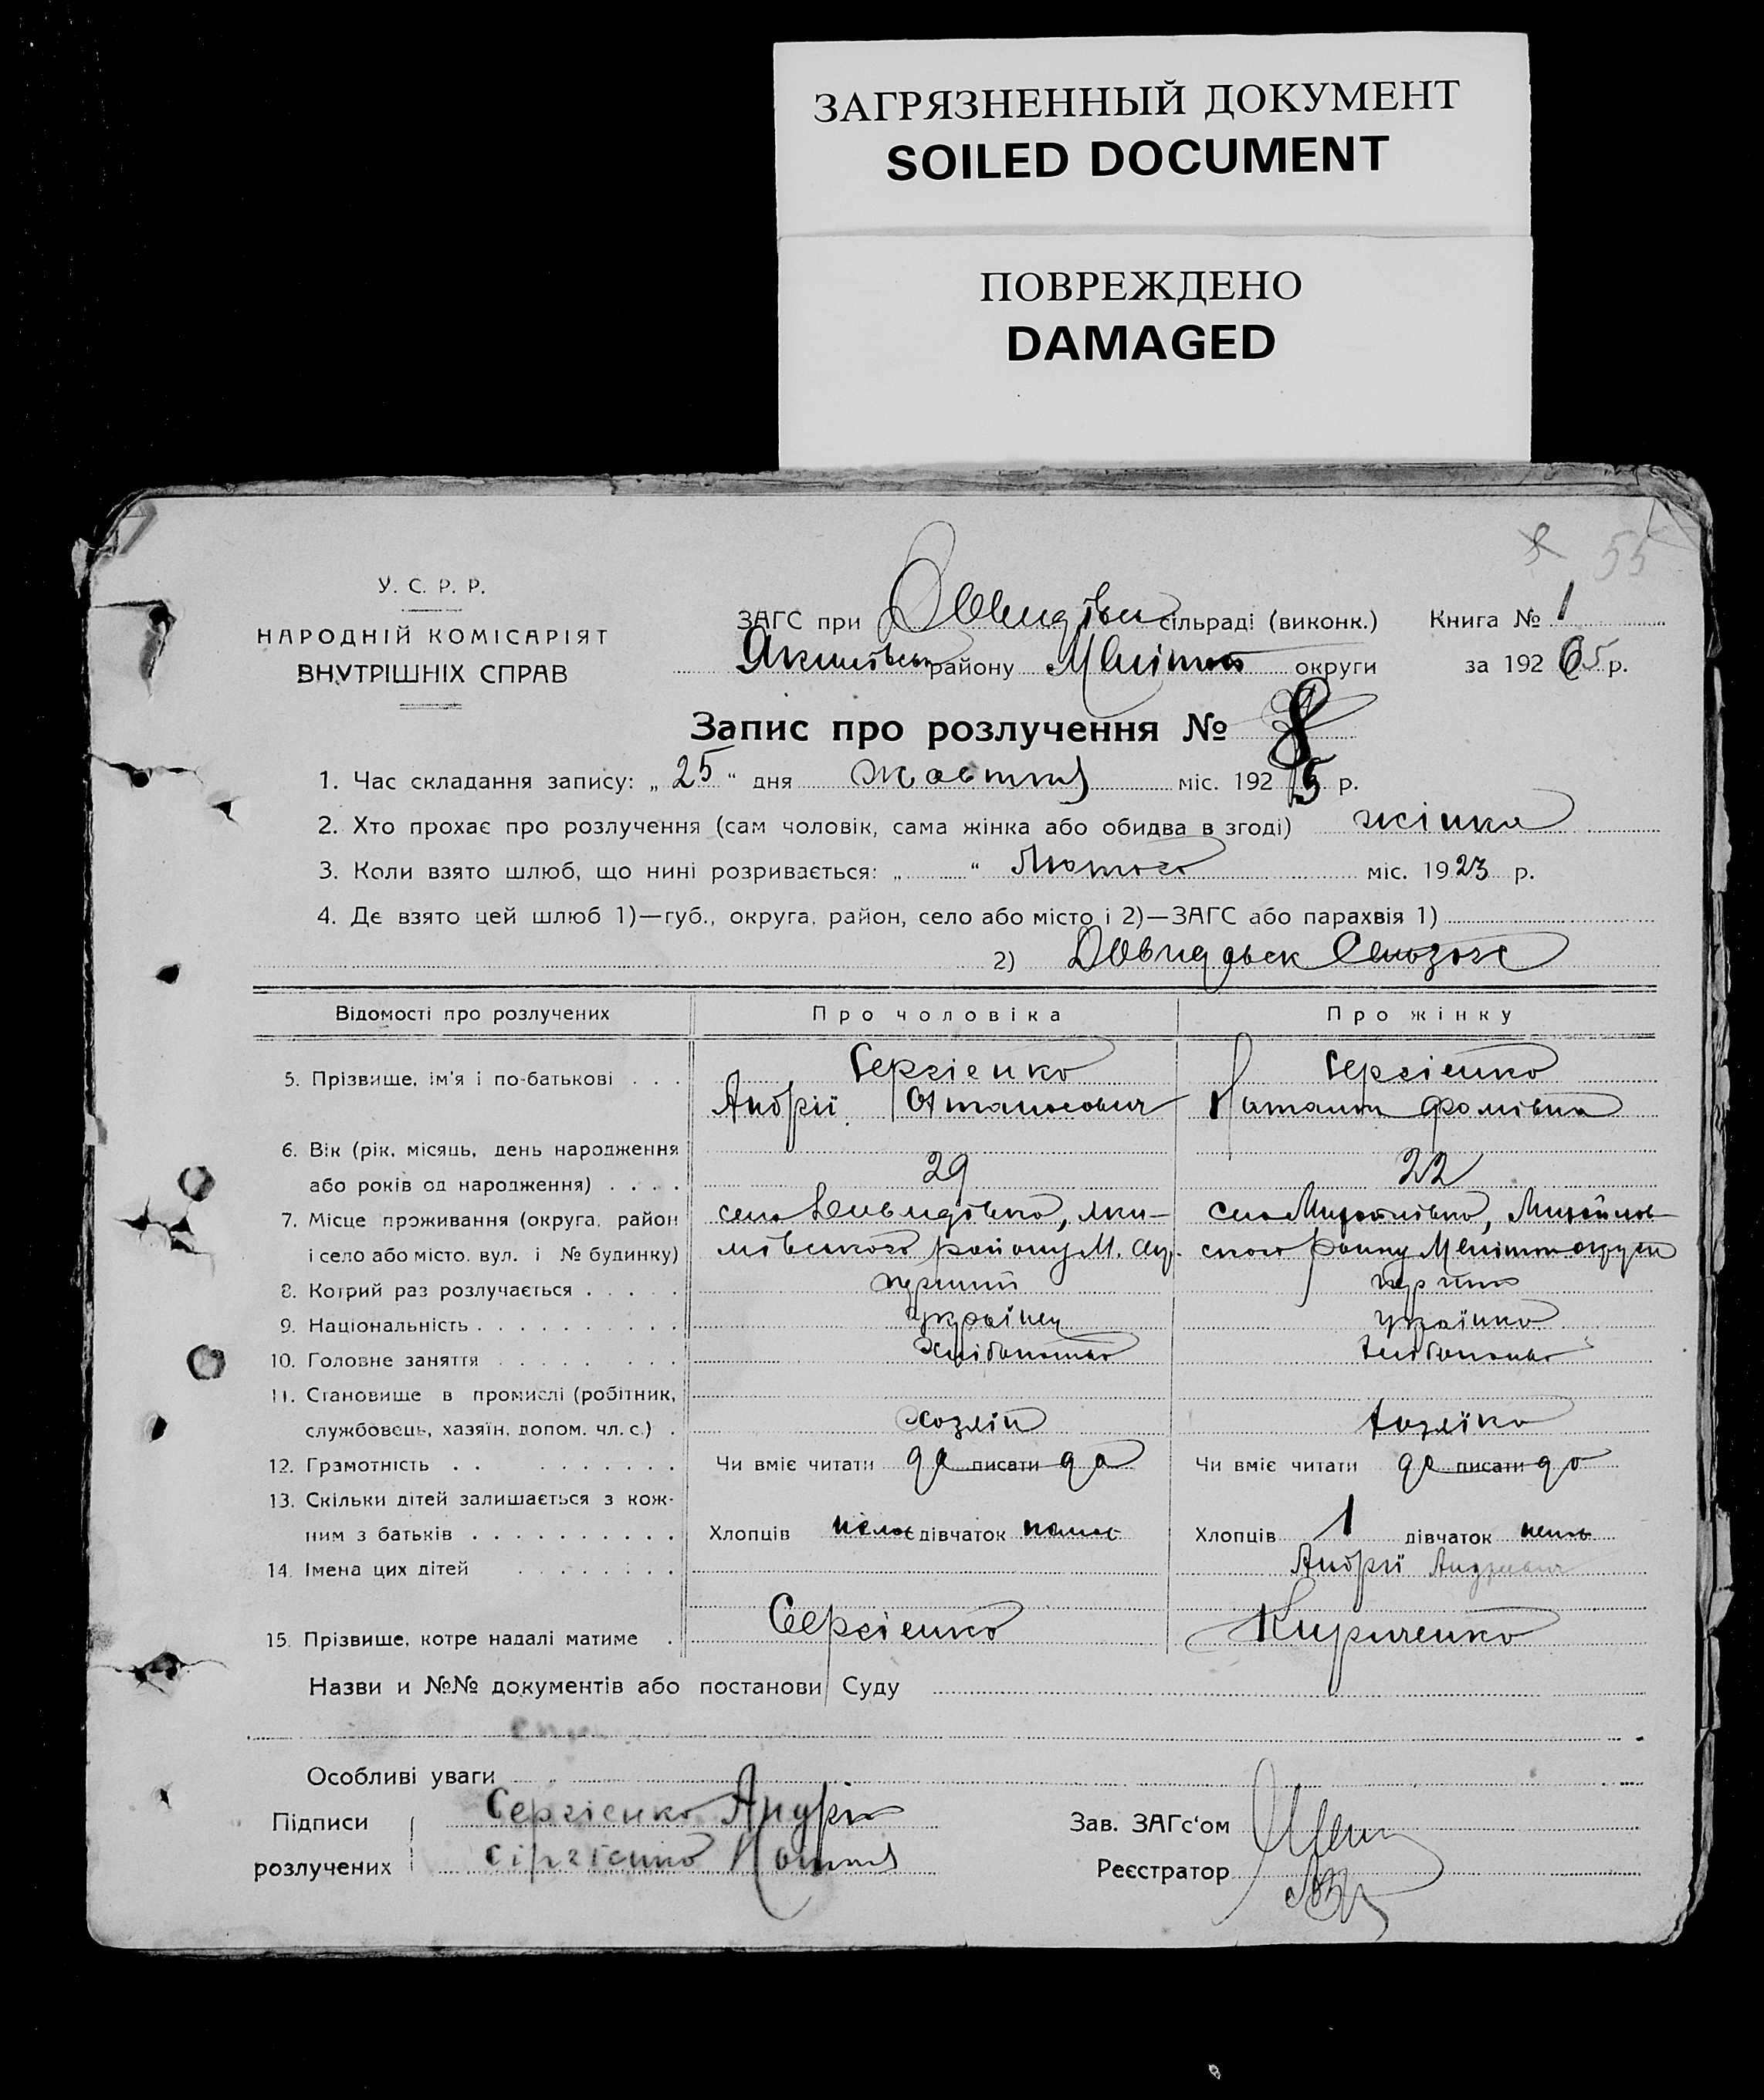 ЗАГРЯЗНЕННЫЙ ДОКУМЕНТ
SOILED DOCUMENT
ПОВРЕЖДЕНО
DAMAGED
55
У. С. Р. Р.
НАРОДНІЙ КОМІСАРІЯТ
ВНУТРІШНІХ СПРАВ
ЗАГС при сільраді (виконк.) Книга № 1
району округи за 192 5 р.
Запис про розлучення № 8
1. Час складання запису: „ 25 “ дня жовтня міс. 192 5 р.
2. Хто прохає про розлучення (сам чоловік, сама жінка або обидва в згоді) жінка
3. Коли взято шлюб, що нині розривається: „ “ Лютого міс. 19 23 р.
4. Де взято цей шлюб 1)—губ., округа, район, село або місто і 2)—ЗАГС або парахвія 1)
2)
Відомості про розлучених Про чоловіка Про жінку
5. Прізвище, ім'я і по-батькові . . . Сергієнко Сергієнко
Андрій Фомівна
6. Вік (рік, місяць, день народження
або років од народження) . . . . 29 22
7. Місце проживання (округа, район село село Михайлівка,
і село або місто, вул. і № будинку) району М.
8. Котрий раз розлучається . . . . . перший перший
9. Національність . . . . . . . . . . українец українка
10. Головне заняття . . . . . . . . .
11. Становище в промислі (робітник,
службовець, хазяїн, допом. чл. с.) . хозяін хозяїка
12. Грамотність . . . . . . . . . Чи вміє читати да писати да Чи вміє читати да писати да
13. Скільки дітей залишається з кож-
ним з батьків . . . . . . . . . . Хлопців немає дівчаток немає Хлопців 1 дівчаток немає
14. Імена цих дітей . . . . . . . . Андрій Андреевич
15. Прізвище, котре надалі матиме . Сергієнко Кириченко
Назви и №№ документів або постанови Суду
Особливі уваги
Підписи Сергієнко Андрій Зав. ЗАГс'ом
розлучених Сіргієнко Реєстратор